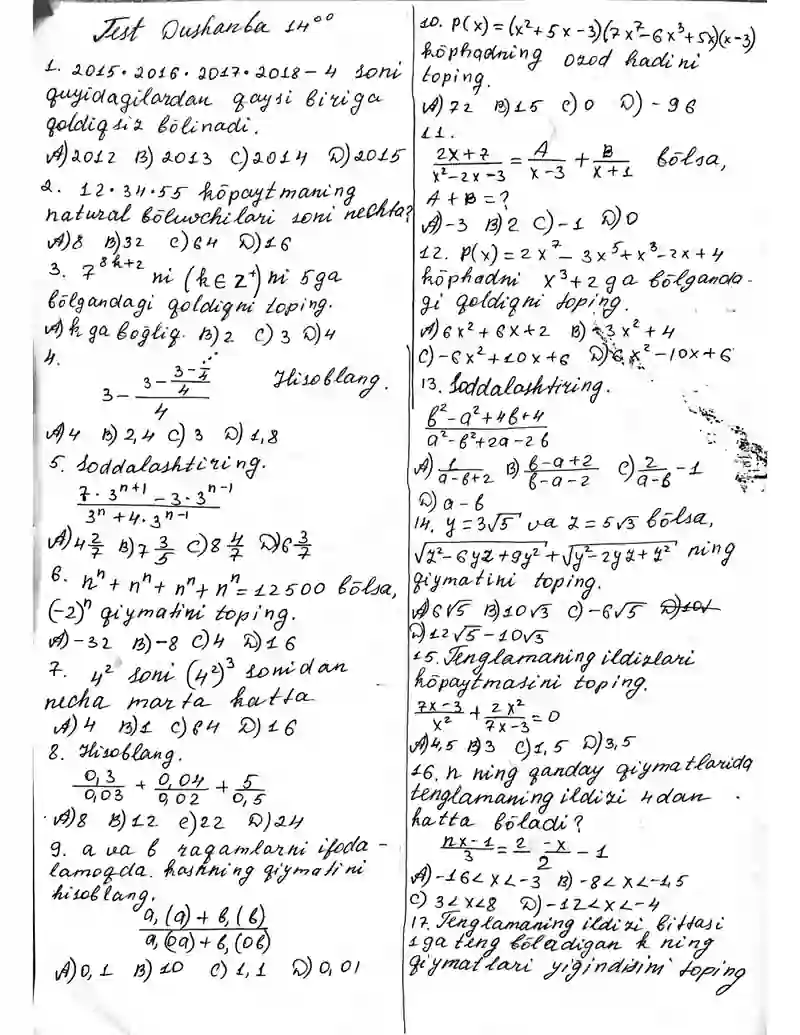 Test Dushanba 14⁰⁰
1. 2015·2016·2017·2018-4 soni
quyidagilardan qaysi biriga
qoldiqsiz bo̅linadi.
A) 2012 B) 2013 C) 2014 D) 2015
2. 12·34·55 ko̅paytmaning
natural bo̅luvchilari soni nechta?
A) 8 B) 32 C) 64 D) 16
3. 7^(8k+2) ni (k∈Z⁺) ni 5ga
bo̅lgandagi qoldiqni toping.
A) k ga bog̅liq. B) 2 C) 3 D) 4
4.
3 - (3 - (3 - 3/4...)/4)/4 Hisoblang.
A) 4 B) 2,4 C) 3 D) 1,8
5. Soddalashtiring.
(7·3^(n+1) - 3·3^(n-1))/(3^n + 4·3^(n-1))
A) 4 2/7 B) 7 3/5 C) 8 4/7 D) 6 3/7
6. nⁿ + nⁿ + nⁿ + nⁿ = 12500 bo̅lsa,
(-2)ⁿ qiymatini toping.
A) -32 B) -8 C) 4 D) 16
7. 4² soni (4²)³ sonidan
necha marta katta
A) 4 B) 1 C) 64 D) 16
8. Hisoblang.
0,3/0,03 + 0,04/0,02 + 5/0,5
A) 8 B) 12 C) 22 D) 24
9. a va b raqamlarni ifoda-
lamoqda. kasrning qiymatini
hisoblang.
(a,(a) + b,(b))/(a,(0a) + b,(0b))
A) 0,1 B) 10 C) 1,1 D) 0,01
10. P(x) = (x² + 5x - 3)(7x⁷ - 6x³ + 5x)(x - 3)
ko̅phadning ozod hadini
toping.
A) 72 B) 15 C) 0 D) -96
11.
(2x + 7)/(x² - 2x - 3) = A/(x - 3) + B/(x + 1) bo̅lsa,
A + B = ?
A) -3 B) 2 C) -1 D) 0
12. P(x) = 2x⁷ - 3x⁵ + x³ - 2x + 4
ko̅phadni x³ + 2 ga bo̅lganda-
gi qoldiqni toping.
A) 6x² + 6x + 2 B) -3x² + 4
C) -6x² + 10x + 6 D) 6x² - 10x + 6
13. Soddalashtiring.
(b² - a² + 4b + 4)/(a² - b² + 2a - 2b)
A) 1/(a - b + 2) B) (b - a + 2)/(b - a - 2) C) 2/(a - b) - 1
D) a - b
14. y = 3√5 va z = 5√3 bo̅lsa,
√(z² - 6yz + 9y²) + √(y² - 2yz + z²) ning
qiymatini toping.
A) 6√5 B) 10√3 C) -6√5
D) 12√5 - 10√3
15. Tenglamaning ildizlari
ko̅paytmasini toping.
(7x - 3)/x² + 2x²/(7x - 3) = 0
A) 4,5 B) 3 C) 1,5 D) 3,5
16. n ning qanday qiymatlarida
tenglamaning ildizi 4dan
katta bo̅ladi?
(nx - 1)/3 = (2 - x)/2 - 1
A) -16 < x < -3 B) -8 < x < -1,5
C) 3 < x < 8 D) -12 < x < -4
17. Tenglamaning ildizi bittasi
1ga teng bo̅ladigan k ning
qiymatlari yig̅indisini toping